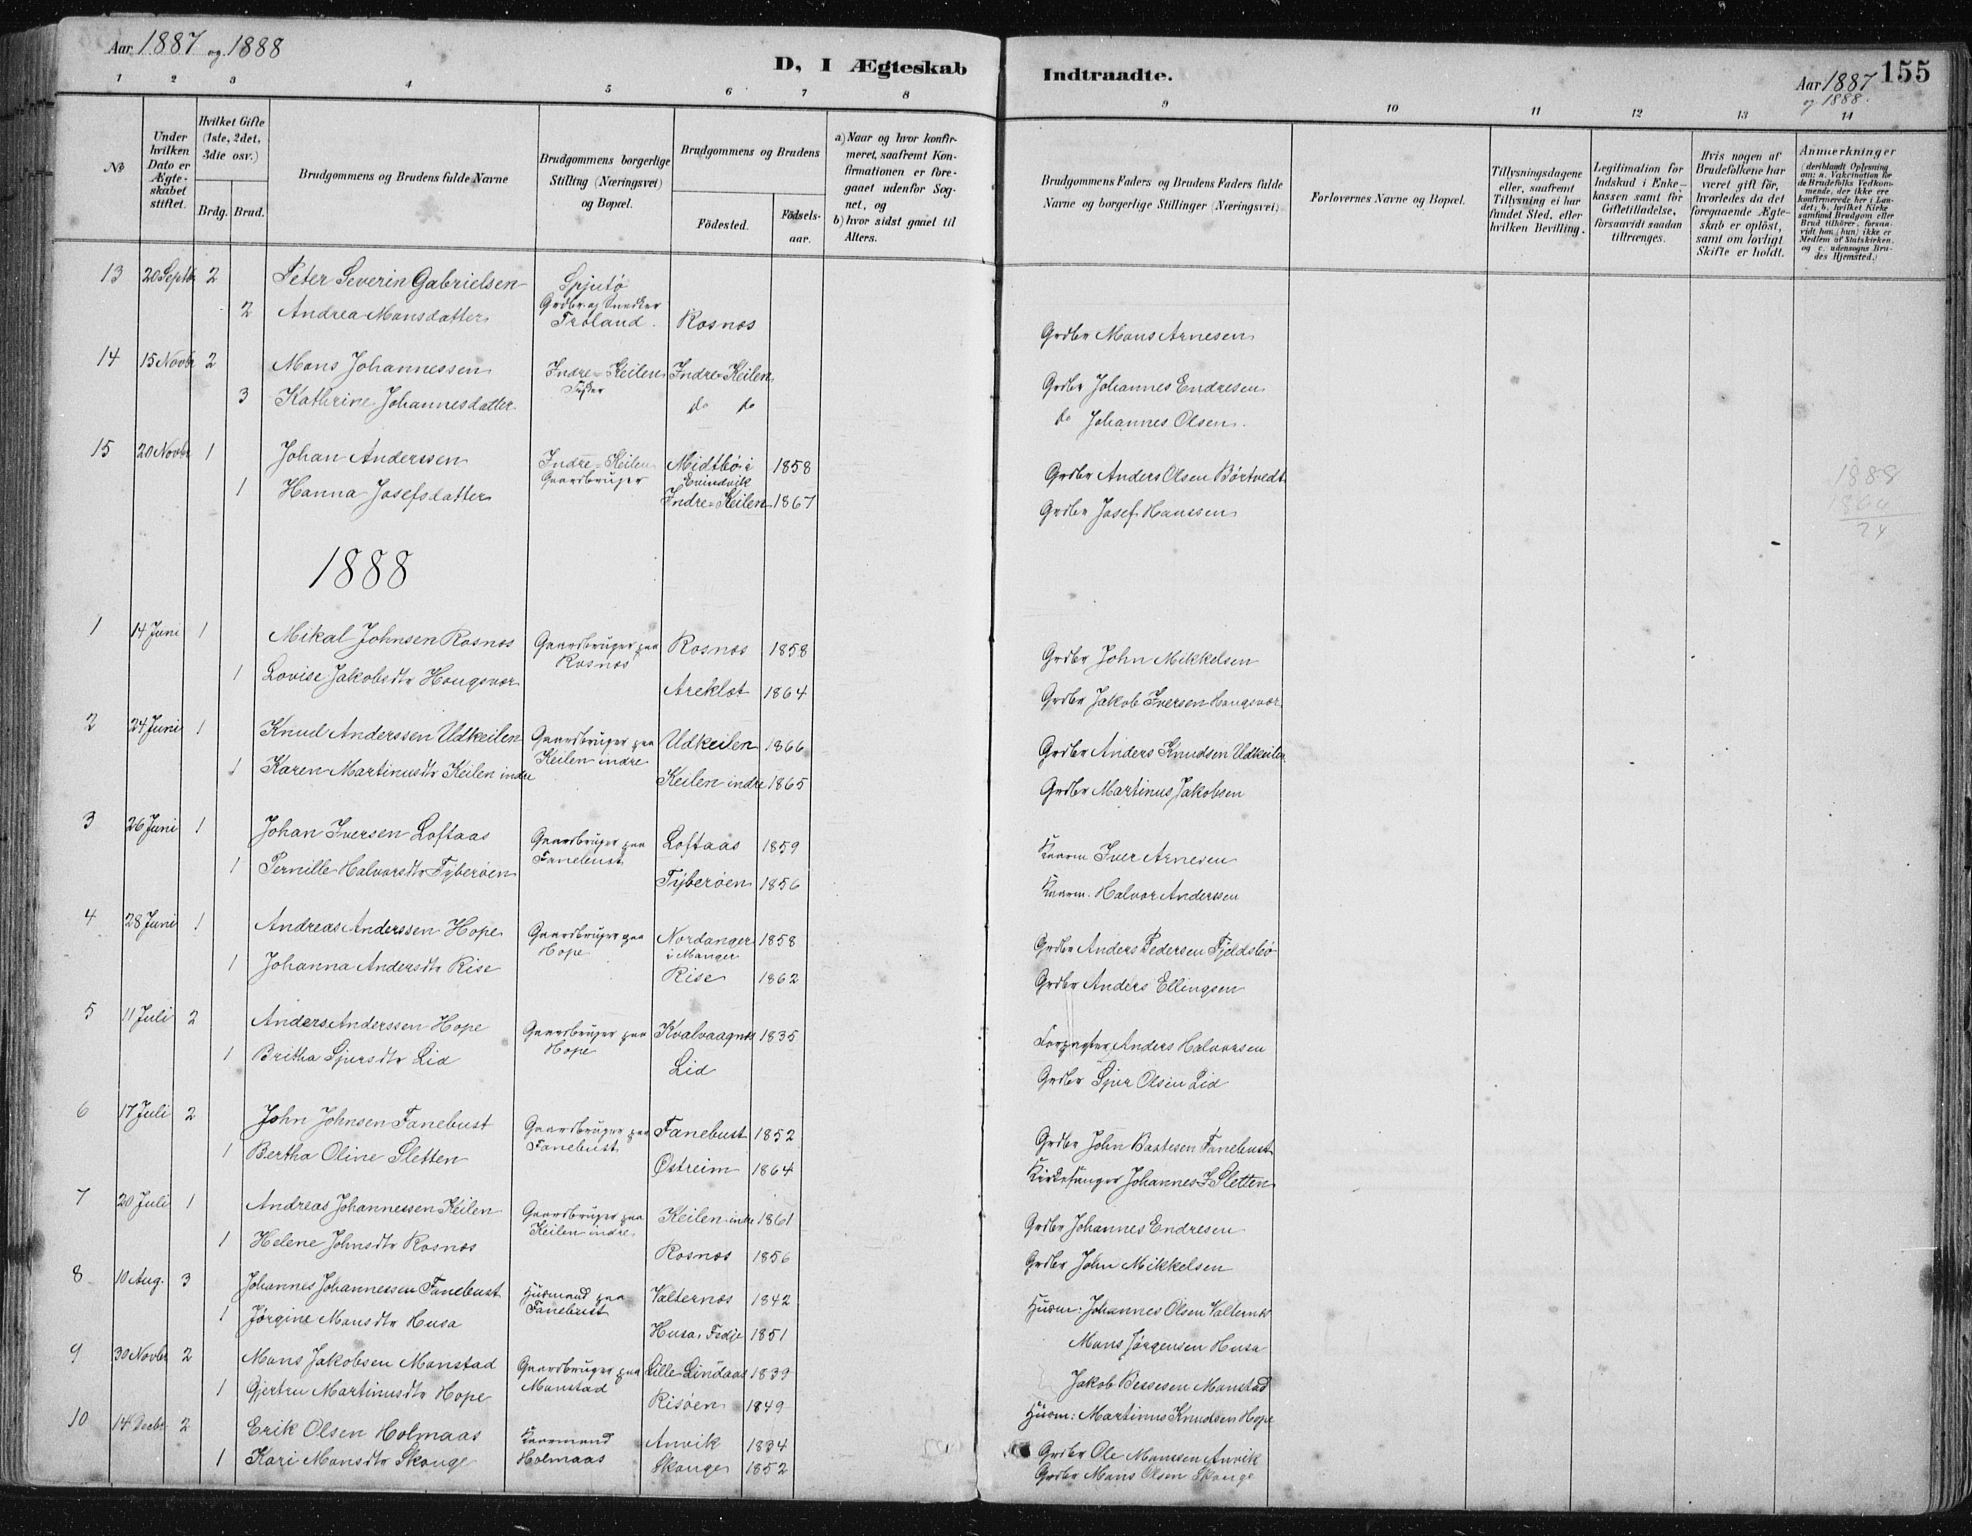 Aar 1887 og 1888
D, I Ægteskab Indtraadte.
Aar 1887 og 1888.
155
1 2 3 4 5 6 7 8 9 10 11 12 13 14
No
Under hvilken Dato er Ægteskabet stiftet.
Hvilket Gifte (1ste, 2det, 3die osv.)
Brdg. Brud.
Brudgommens og Brudens fulde Navne
Brudgommens borgerlige Stilling (Næringsvei) og Bopæl.
Brudgommens og Brudens
Födested.
Födselsaar.
a) Naar og hvor konfirmeret, saafremt Konfirmationen er foregaaet udenfor Sognet, og
b) hvor sidst gaaet til Alters.
Brudgommens Faders og Brudens Faders fulde Navne og borgerlige Stillinger (Næringsvei)
Forlovernes Navne og Bopæl.
Tillysningsdagene eller, saafremt Tillysning ei har fundet Sted, efter hvilken Bevilling.
Legitimation for Indskud i Enkekassen samt for Giftetilladelse, forsaavidt saadan tiltrænges.
Hvis nogen af Brudefolkene har været gift før, hvorledes da det foregaaende Ægteskab er opløst, samt om lovligt Skifte er holdt.
Anmerkninger (deriblandt Oplysning om: a. Vakcination for de Brudefolks Vedkommende, der ikke ere konfirmerede her i Landet; b. hvilket Kirkesamfund Brudgom eller Brud tilhører, forsaavidt han (hun) ikke er Medlem af Statskirken, og c. udensogns Brudes Hjemsted.)
13 20 Septb 2 Peter Severin Gabrielsen Spjutø
Grdbr og Snedker
2 Andrea Monsdatter Troland. Rosnæs Grdbr Mons Arnesen
14 15 Novbr 2 Mons Johannessen Indre-Keilen Indre-Keilen Grdbr Johannes Endresen
Fisker
3 Kathrine Johannesdatter do do do Johannes Olsen.
15 20 Novbr 1 Johan Anderssen Indre-Keilen Midtbö i Evindvik 1858 Grdbr Anders Olsen Börtvedt
Gaardbruger
1 Hanna Josefsdatter Indre-Keilen 1867 Grdbr Josef Hanssen
1888
1864
24
1888
1 14 Juni 1 Mikal Johnsen Rosnæs Gaardbruger paa Rosnæs Rosnæs 1858 Grdbr John Mikkelsen
1 Lovise Jakobsdtr Hougsvær Areklet 1864 Grdbr Jakob Iversen Hougsvær
2 24 Juni 1 Knud Anderssen Udkeilen Gaardbruger paa Keilen indre Udkeilen 1866 Grdbr Anders Knudsen Udkeilen
1 Karen Martinusdtr Keilen indre Keilen indre 1865 Grdbr Martinus Jakobsen
3 26 Juni 1 Johan Iversen Loftaas Gaardbruger paa Fanebust Loftaas 1859 Kaarm Iver Arnesen
1 Pernille Halvorsdtr Tyberöen Tyberöen 1856 Kaarm. Halvor Anderssen
4 28 Juni 1 Andreas Anderssen Hope Gaardbruger paa Hope Nordanger i Manger 1858 Grdbr Anders Pedersen Fjeldsbö
1 Johanna Andersdtr Rise Rise 1862 Grdbr Anders Ellingsen
5 11 Juli 2 Anders Anderssen Hope Gaardbruger paa Hope Kvalvaagnes 1835 Forpagter Anders Halvorsen
1 Britha Sjursdtr Lid Lid Grdbr Sjur Olsen Lid
6 17 Juli 2 John Johnsen Fanebust Gaardbruger paa Fanebust Fanebust 1852 Grdbr John Bastesen Fanebust
1 Bertha Oline Sletten Östreim 1864 Kirkesanger Johannes J Sletten
7 20 Juli 1 Andreas Johannessen Keilen Gaardbruger paa Keilen indre Keilen indre 1861 Grdbr Johannes Endresen
1 Helene Johnsdtr Rosnæs Rosnæs 1856 Grdbr John Mikkelsen
8 10 Aug. 3 Johannes Johannessen Fanebust Husmand paa Fanebust Valternes 1842 Husm: Johannes Olsen Valternes
1 Jørgine Monsdtr Husa Husa, Fedje 1851 Mons Jørgensen Husa
9 30 Novbr 2 Mons Jakobsen Monstad Gaardbruger paa Monstad Lille-Lindaas 1839 Jakob Bessesen Monstad
1 Gjertru Martinusdtr Hope Risöen 1849 Husm: Martinus Knudsen Hope
10 14 Decbr 2 Erik Olsen Holmaas Kaarmand Holmaas Anvik 1834 Grdbr Ole Monssen Anvik
1 Kari Monsdtr Skauge Skauge 1852 Grdbr Mons Olsen Skauge